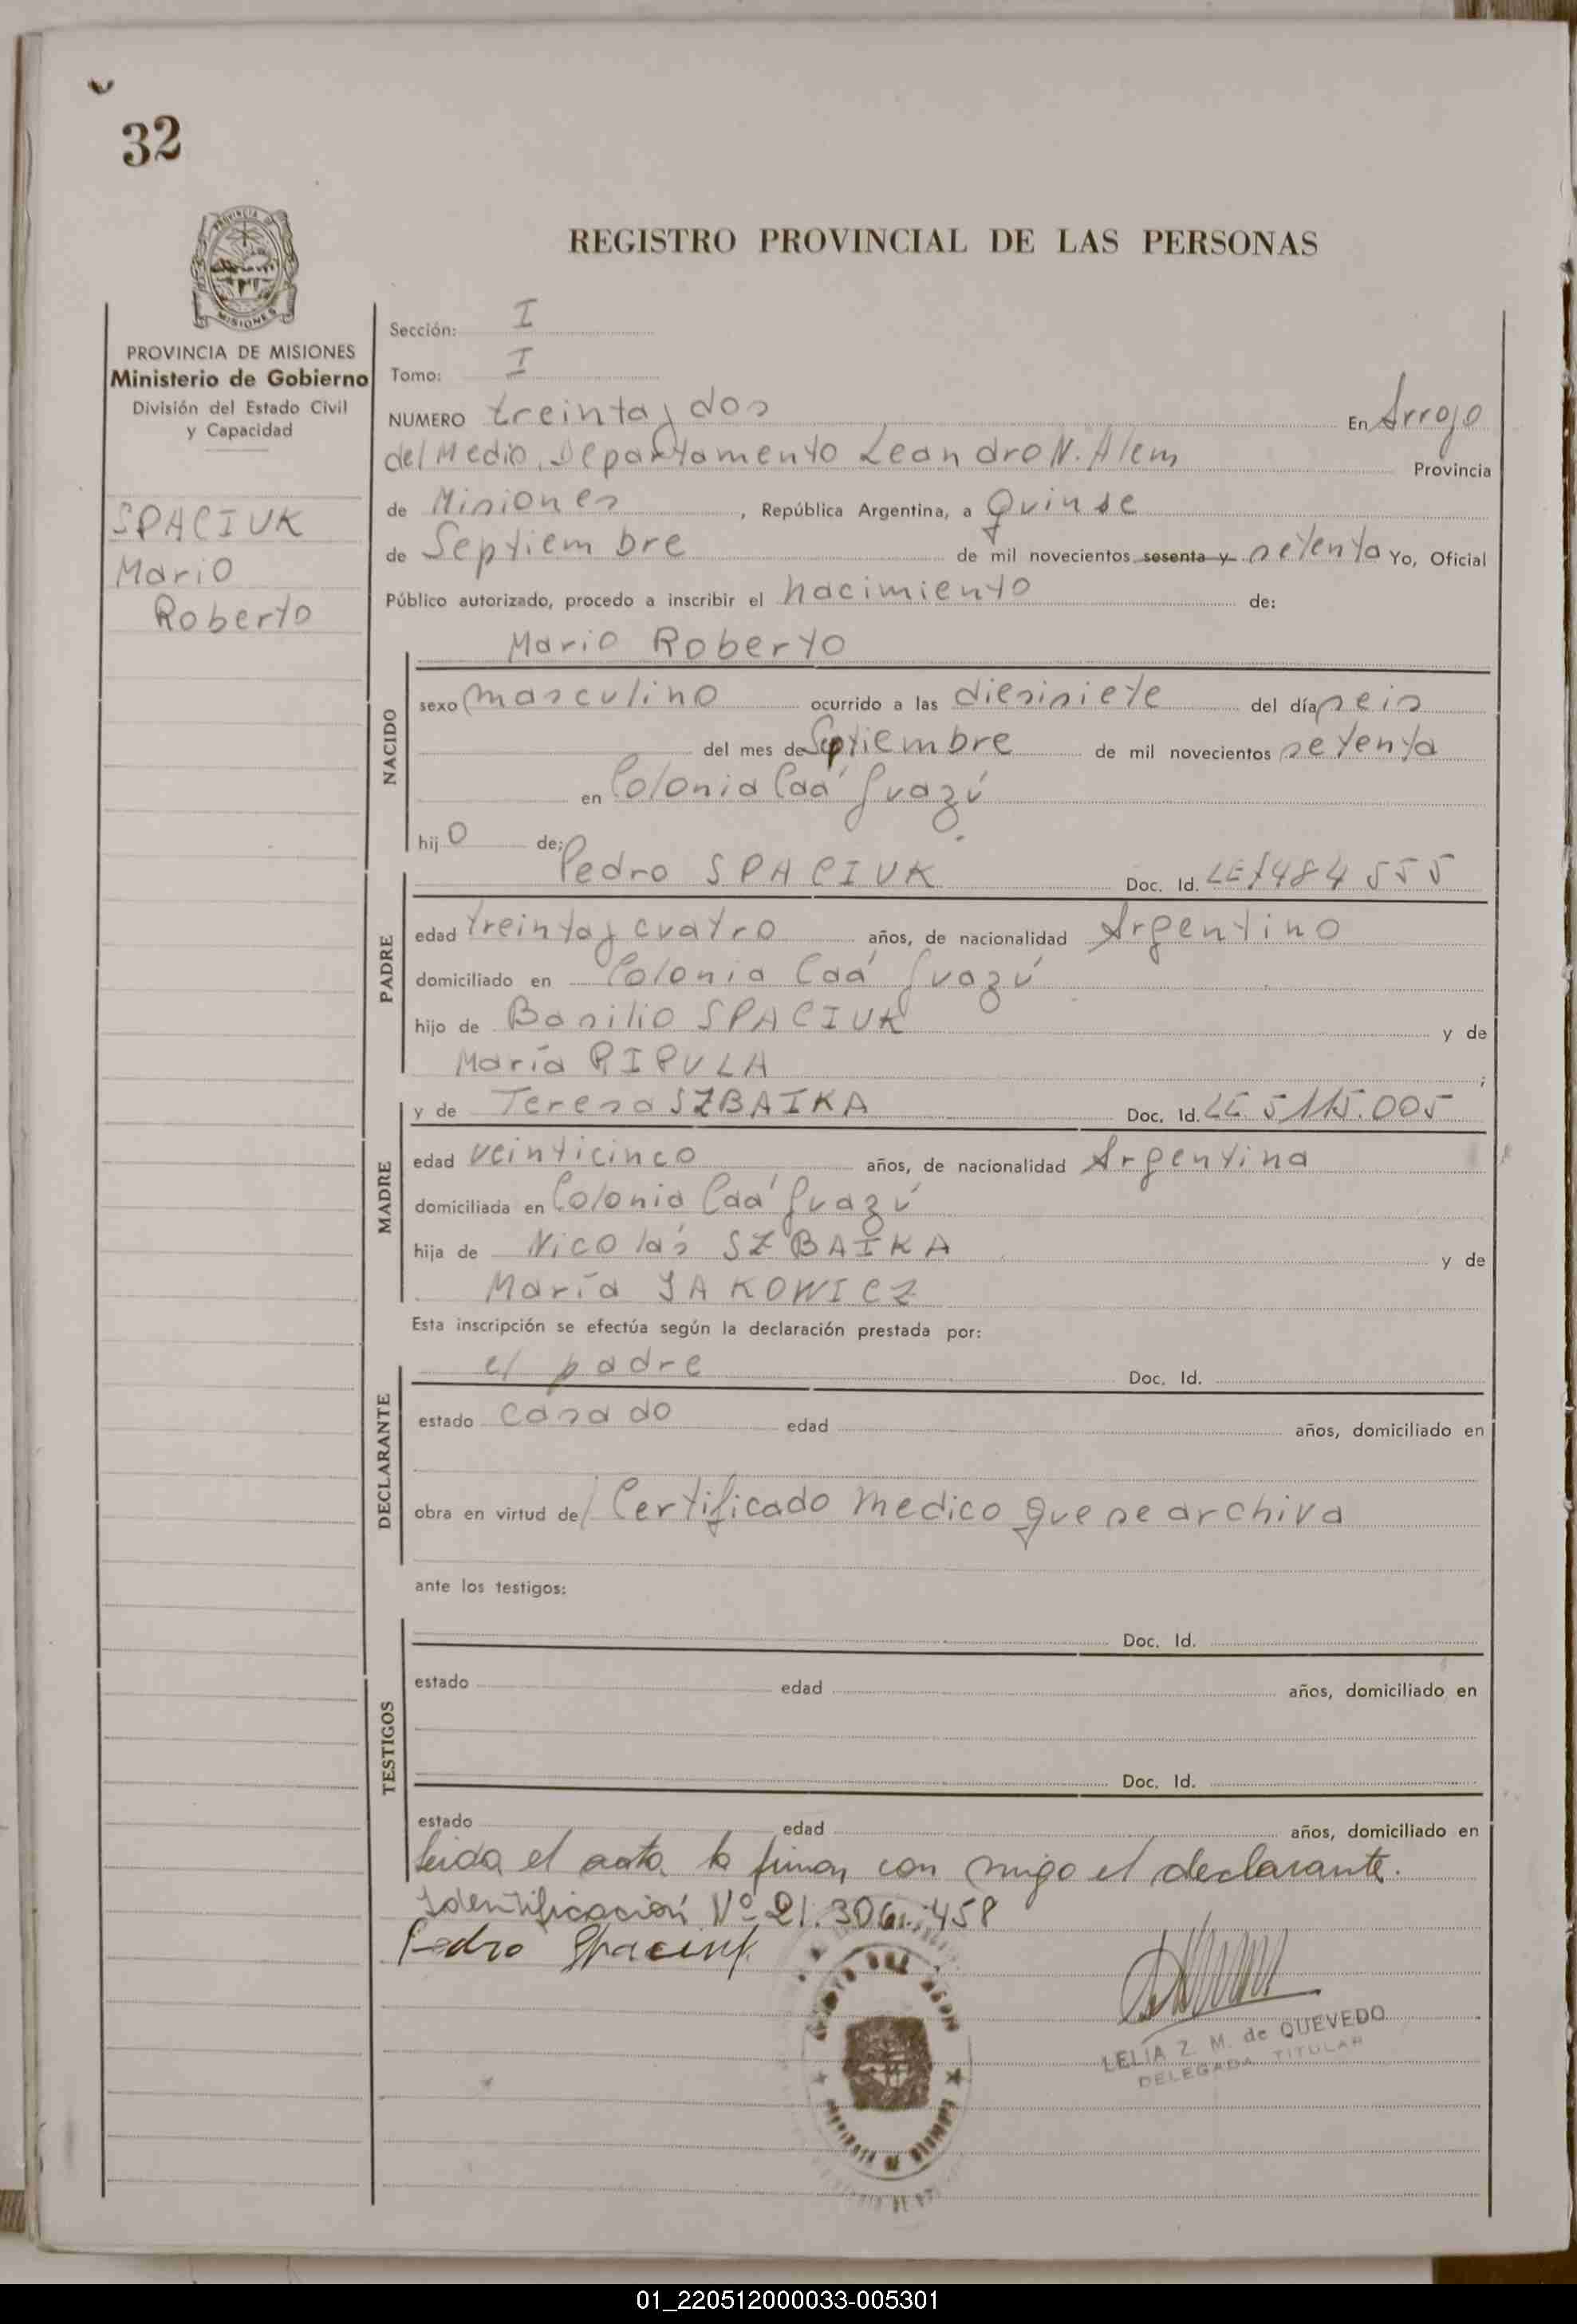 32
PROVINCIA DE
MISIONES
REGISTRO PROVINCIAL DE LAS PERSONAS
PROVINCIA DE MISIONES
Ministerio de Gobierno
División del Estado Civil
y Capacidad
SPACIUK
Mario
Roberto
Sección: I
Tomo: I
NUMERO treinta y dos En Arroyo
del Medio, Departamento Leandro N. Alem Provincia
de Misiones, República Argentina, a Quinse
de Septiembre de mil novecientos sesenta y setenta Yo, Oficial
Público autorizado, procedo a inscribir el nacimiento de:
Mario Roberto
NACIDO
sexo masculino ocurrido a las diesisiete del día seis
del mes de Septiembre de mil novecientos setenta
en Colonia Caá Guazú
hijo de:
Pedro SPACIUK Doc. Id. LE 7484555
PADRE
edad treinta y cuatro años, de nacionalidad Argentino
domiciliado en Colonia Caá Guazú
hijo de Basilio SPACIUK y de
María PIPULA ;
y de Teresa SZBAIKA Doc. Id. LC 5115.005
MADRE
edad veinticinco años, de nacionalidad Argentina
domiciliada en Colonia Caá Guazú
hija de Nicolás SZBAIKA y de
María JAKOWICZ
Esta inscripción se efectúa según la declaración prestada por:
el padre Doc. Id.
DECLARANTE
estado casado edad años, domiciliado en
obra en virtud de Certificado medico que se archiva
ante los testigos:
Doc. Id.
TESTIGOS
estado edad años, domiciliado en
Doc. Id.
estado edad años, domiciliado en
leida el acta la firman con migo el declarante.
Identificación Nº 21.306.458
Pedro Spaciuk
LELIA Z. M. de QUEVEDO
DELEGADA TITULAR
01_220512000033-005301